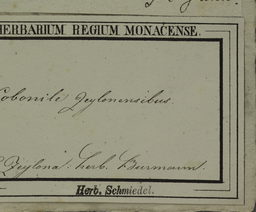 HERBARIUM REGIUM MONACENSE.
Zeylonensibus
Zeylona. herb. Burmann.
Herb. Schmiedel.